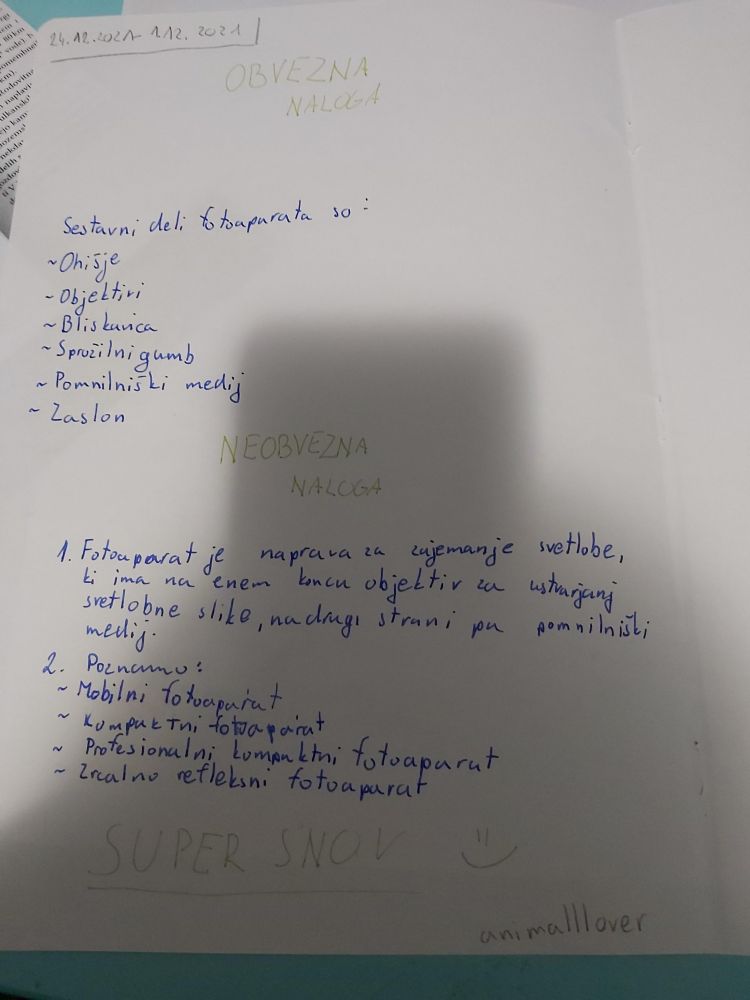 24.12.2021- 1.12. 2021
OBVEZNA
NALOGA
Sestavni deli fotoaparata so:
~Ohišje
~Objektivi
~Bliskavica
~Sprožilni gumb
~Pomnilniški medij
~Zaslon
NEOBVEZNA
NALOGA
1. Fotoaparat je naprava za zajemanje svetlobe,
ki ima na enem koncu objektiv za ustvarjanj
svetlobne slike, na drugi strani pa pomnilniški
medij.
2. Poznamo:
~Mobilni fotoaparat
~Kompaktni fotoaparat
~Profesionalni kompaktni fotoaparat
~Zrcalno refleksni fotoaparat
SUPER SNOV
animalllover